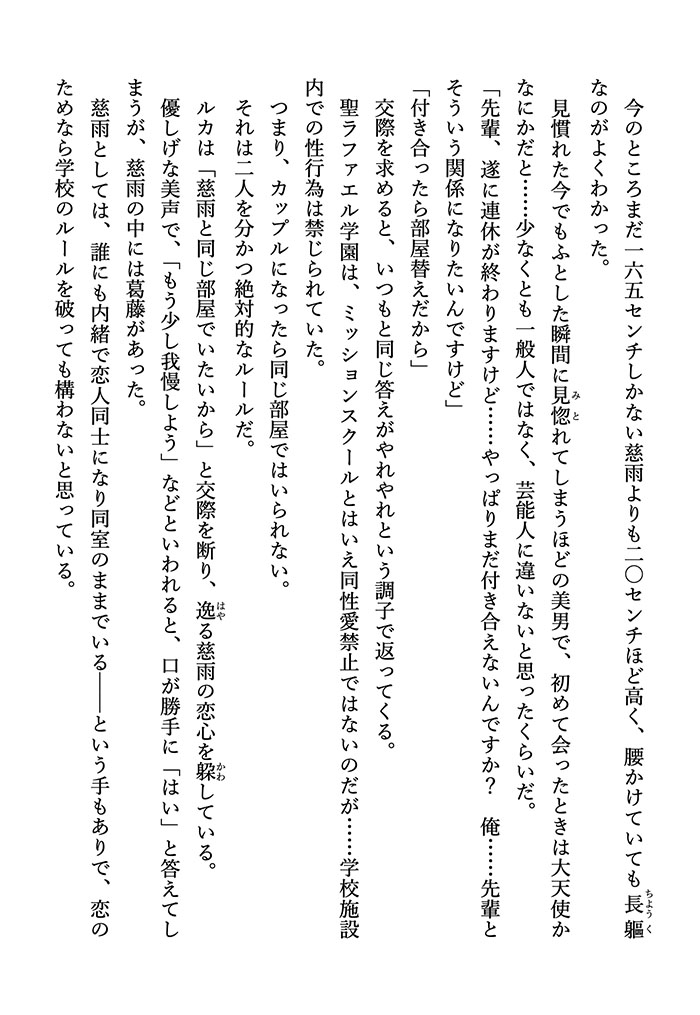 今のところまだ一六五センチしかない慈雨よりも二〇センチほど高く、腰かけていても長軀
なのがよくわかった。
見慣れた今でもふとした瞬間に見惚れてしまうほどの美男で、初めて会ったときは大天使か
なにかだと……少なくとも一般人ではなく、芸能人に違いないと思ったくらいだ。
「先輩、遂に連休が終わりますけど……やっぱりまだ付き合えないんですか？　俺……先輩と
そういう関係になりたいんですけど」
「付き合ったら部屋替えだから」
交際を求めると、いつもと同じ答えがやれやれという調子で返ってくる。
聖ラファエル学園は、ミッションスクールとはいえ同性愛禁止ではないのだが……学校施設
内での性行為は禁じられていた。
つまり、カップルになったら同じ部屋ではいられない。
それは二人を分かつ絶対的なルールだ。
ルカは「慈雨と同じ部屋でいたいから」と交際を断り、逸る慈雨の恋心を躱している。
優しげな美声で、「もう少し我慢しよう」などといわれると、口が勝手に「はい」と答えてし
まうが、慈雨の中には葛藤があった。
慈雨としては、誰にも内緒で恋人同士になり同室のままでいる――という手もありで、恋の
ためなら学校のルールを破っても構わないと思っている。